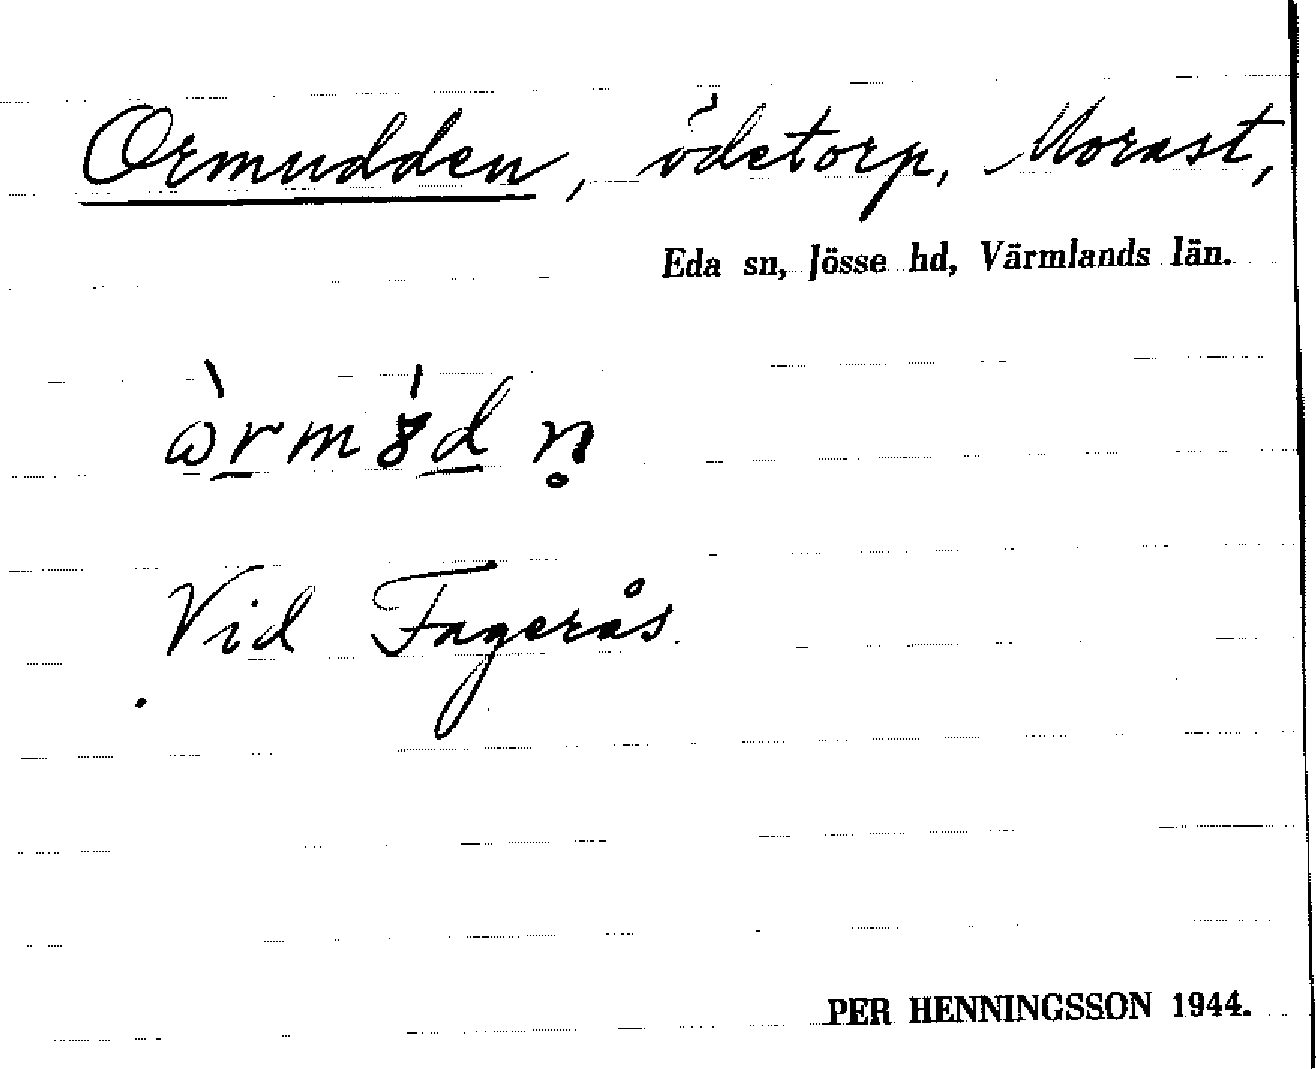 Ormudden, ödetorp, Morast,
Eda sn, Jösse hd, Värmlands län.
Vid Fagerås
PER HENNINGSSON 1944.